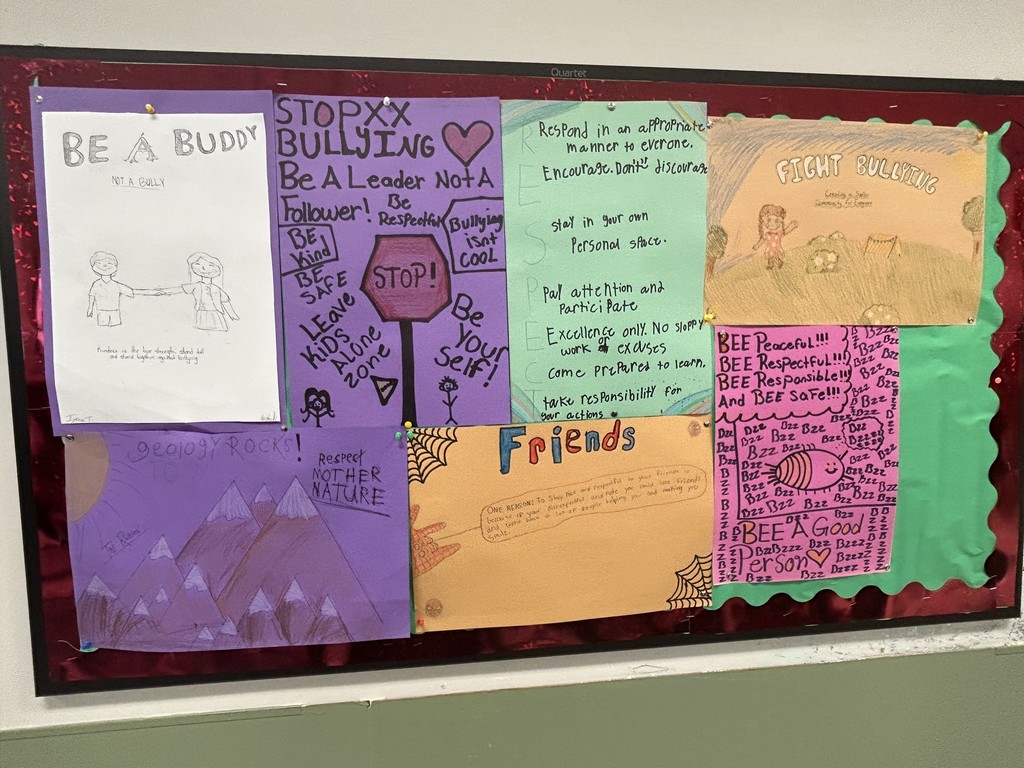 Quartet
BE A BUDDY
NOT A BULLY
Kindness is the true strength, stand tall
and stand together against bullying
STOPXX
BULLYING
Be A Leader Not A
Follower!
Be
Respectful
Bullying
isnt
COOL
BE
Kind
BE
SAFE
STOP!
LEAVE
KIDS
ALONE
ZONE
Be
Your
Self!
RESPECT
Respond in an appropriate
manner to everone.
Encourage. Don't discourage
stay in your own
Personal space.
Pay attention and
participate
Excellence only. No sloppy
work or excuses
come prepared to learn.
take responsibility for
your actions
FIGHT BULLYING
Creating a Safer
Community for Everyone
geology ROCKS!
Respect
MOTHER
NATURE
Friends
ONE REASON: To stay nice and respectful to your friends is
because if your disrespectful and rude you could lose friends
and
smile.
BEE Peaceful!!!
BEE Respectful!!!
BEE Responsible!!!
And BEE Safe!!!
Bzz Bzz Bzz
BEE A Good
Person